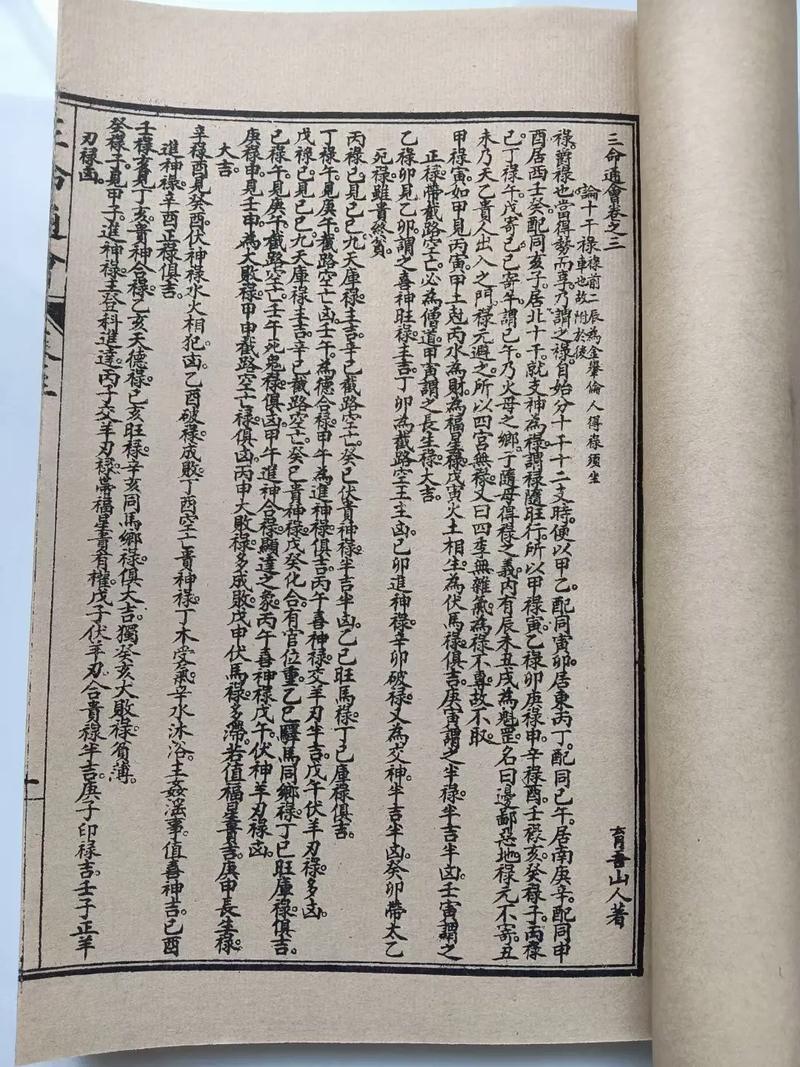 三命通會卷之三
育吾山人著
論十干祿祿前二辰為金轝倫人得祿須坐
車也故附於後
祿爵祿也當得勢而享乃謂之祿自始分十干十二支時便以甲乙配同寅卯居東丙丁配同巳午居南庚辛配同申
酉居西壬癸配同亥子居北十干就支神為祿謂祿隨旺行所以甲祿寅乙祿卯庚祿申辛祿酉壬祿亥癸祿子丙祿
巳丁祿午戊寄巳己寄午謂巳午乃火母之鄉子隨母得祿之義內有辰未丑戌為魁罡名曰邊鄙惡地祿元不寄丑
未乃天乙貴人出入之門祿元避之所以四宮無祿又曰四季無雜氣為祿不尊故不取
甲祿寅如甲見丙寅甲土剋丙水為財為福星祿戊寅火土相生為伏馬祿俱吉庚寅謂之半祿半吉半凶壬寅謂之
正祿帶截路空亡必為僧道甲寅謂之長生祿大吉
乙祿卯見乙卯謂之喜神旺祿主吉丁卯為截路空王主凶己卯進神祿辛卯破祿又為交神半吉半凶癸卯帶太乙
死祿雖貴終貧
丙祿巳見己巳九天庫祿主吉辛巳截路空亡癸巳伏貴神祿半吉半凶乙巳旺馬祿丁巳庫祿俱吉
丁祿午見庚午截路空亡凶壬午為德合祿甲午為進神祿俱吉丙午喜神祿交羊刃半吉戊午伏羊刃祿多凶
戊祿巳見己巳九天庫祿主吉辛巳截路空亡癸巳貴神祿戊癸化合有官位重乙巳驛馬同鄉祿丁巳旺庫祿俱吉
己祿午見庚午截路空亡壬午死鬼祿俱凶甲午進神合祿顯達之象丙午喜神祿戊午伏神羊刃祿凶
庚祿申見壬申為大敗祿甲申截路空亡祿俱凶丙申大敗祿多成敗戊申伏馬祿多滯若值福星貴吉庚申長生祿
大吉
辛祿酉見癸酉伏神祿水火相犯凶乙酉破祿成敗丁酉空亡貴神祿丁木受氣辛水沐浴主姦滛事值喜神吉己酉
進神祿辛酉正祿俱吉
壬祿亥見丁亥貴神合祿乙亥天德祿己亥旺祿辛亥同馬鄉祿俱大吉獨癸亥大敗祿貧薄
癸祿子見甲子進神祿主登科進達丙子交羊刃祿帶福星貴有權戊子伏羊刃合貴祿半吉庚子印祿吉壬子正羊
刃祿凶